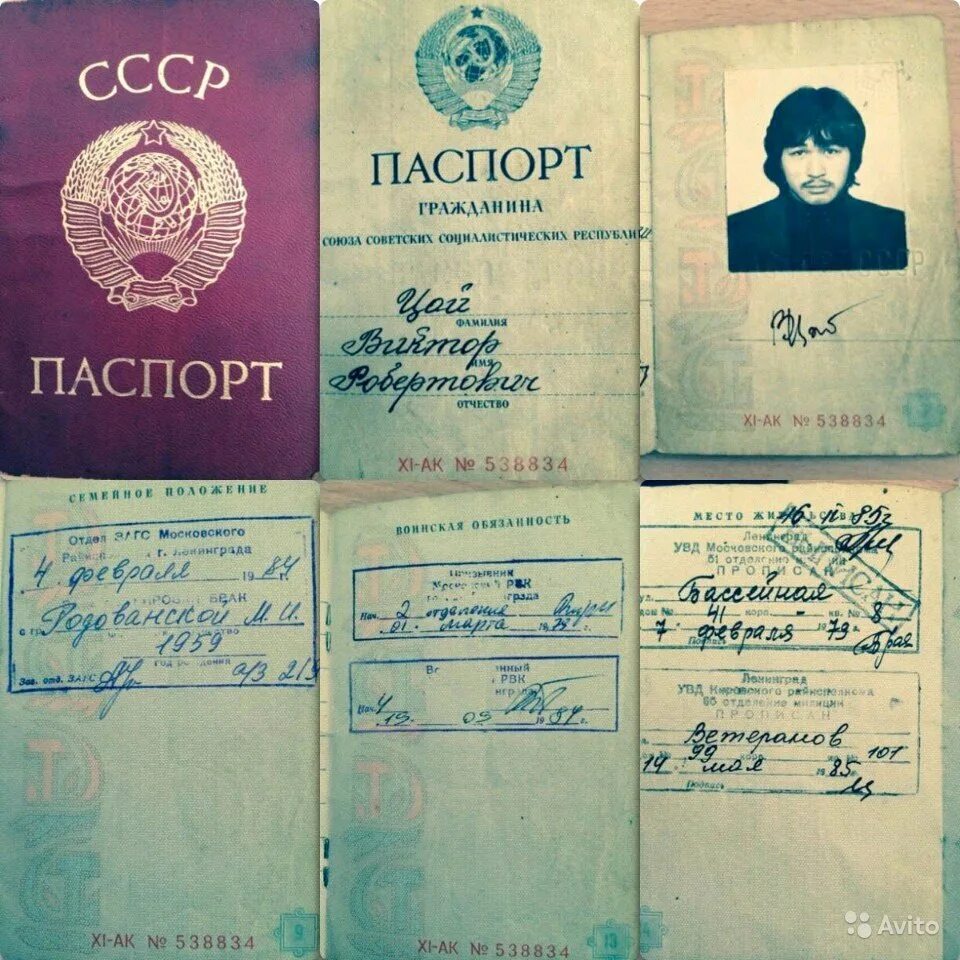 СССР
ПАСПОРТ
ПАСПОРТ
ГРАЖДАНИНА
СОЮЗА СОВЕТСКИХ СОЦИАЛИСТИЧЕСКИХ РЕСПУБЛИ
Цой
ФАМИЛИЯ
Виктор
ИМЯ
Робертович
ОТЧЕСТВО
XI-АК № 538834
СССР
XI-АК № 538834
СЕМЕЙНОЕ ПОЛОЖЕНИЕ
Отдел ЗАГС Московского
г. Ленинграда
4 февраля 1984 г.
БРАК
Родованской М.И.
1959
Год рождения
Зав. отд. ЗАГС а/з 219
9
XI-АК № 538834
ВОИНСКАЯ ОБЯЗАННОСТЬ
РВК
Нач. 2 отделения
01 марта 1979 г.
РВК
Нач. 4
19. 03 1984 г.
13
XI-АК № 538834
МЕСТО ЖИТЕЛЬСТВА
16 85г
Ленинград
УВД Московского райисполкома
51 отделение милиции
ПРОПИСАН
ВЫПИСАН
ул. Бассейная
дом № 41 корп. кв. № 8
7 февраля 1979 г.
Подпись
Ленинград
УВД Кировского райисполкома
65 отделение милиции
ПРОПИСАН
Ветеранов
99 101
19 мая 1985 г.
Подпись
Avito